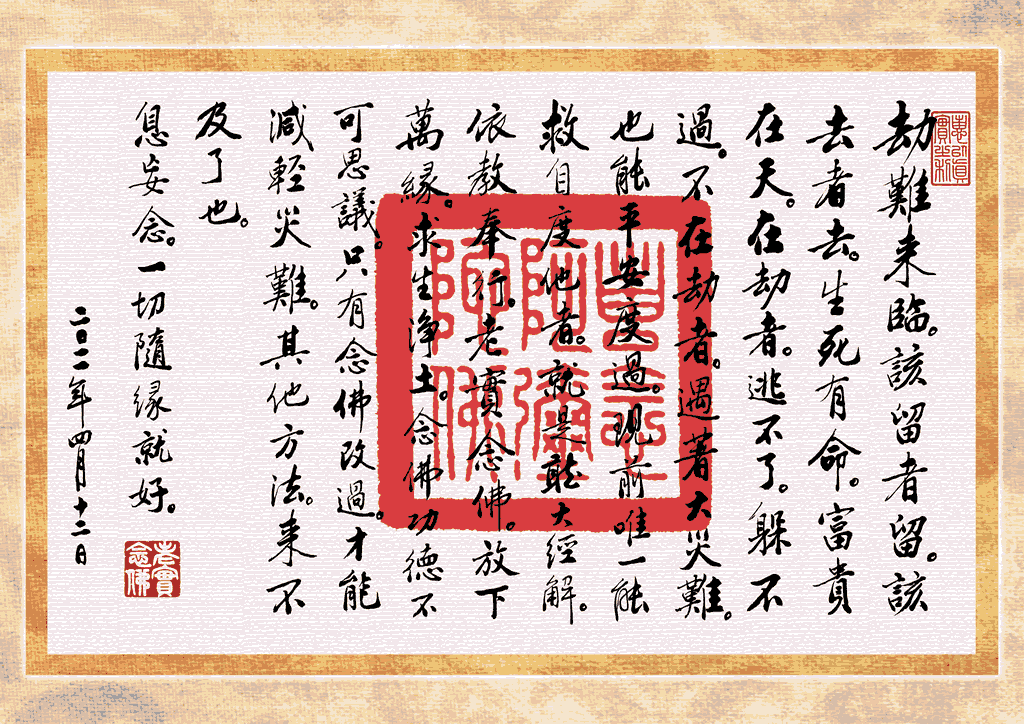 惠以真
實之利
劫難来臨。該留者留。該
去者去。生死有命。富貴
在天。在劫者。逃不了。躲不
過。不在劫者。遇著大災難。
也能平安度過。現前唯一能
救自度他者。就是聽大經解。
依教奉行。老實念佛。放下
萬緣。求生淨土。念佛功德不
可思議。只有念佛改過。才能
減輕災難。其他方法。来不
及了也。
息妄念。一切隨緣就好。
二〇一一年四月十二日
老實
念佛
南無
阿彌
陀佛